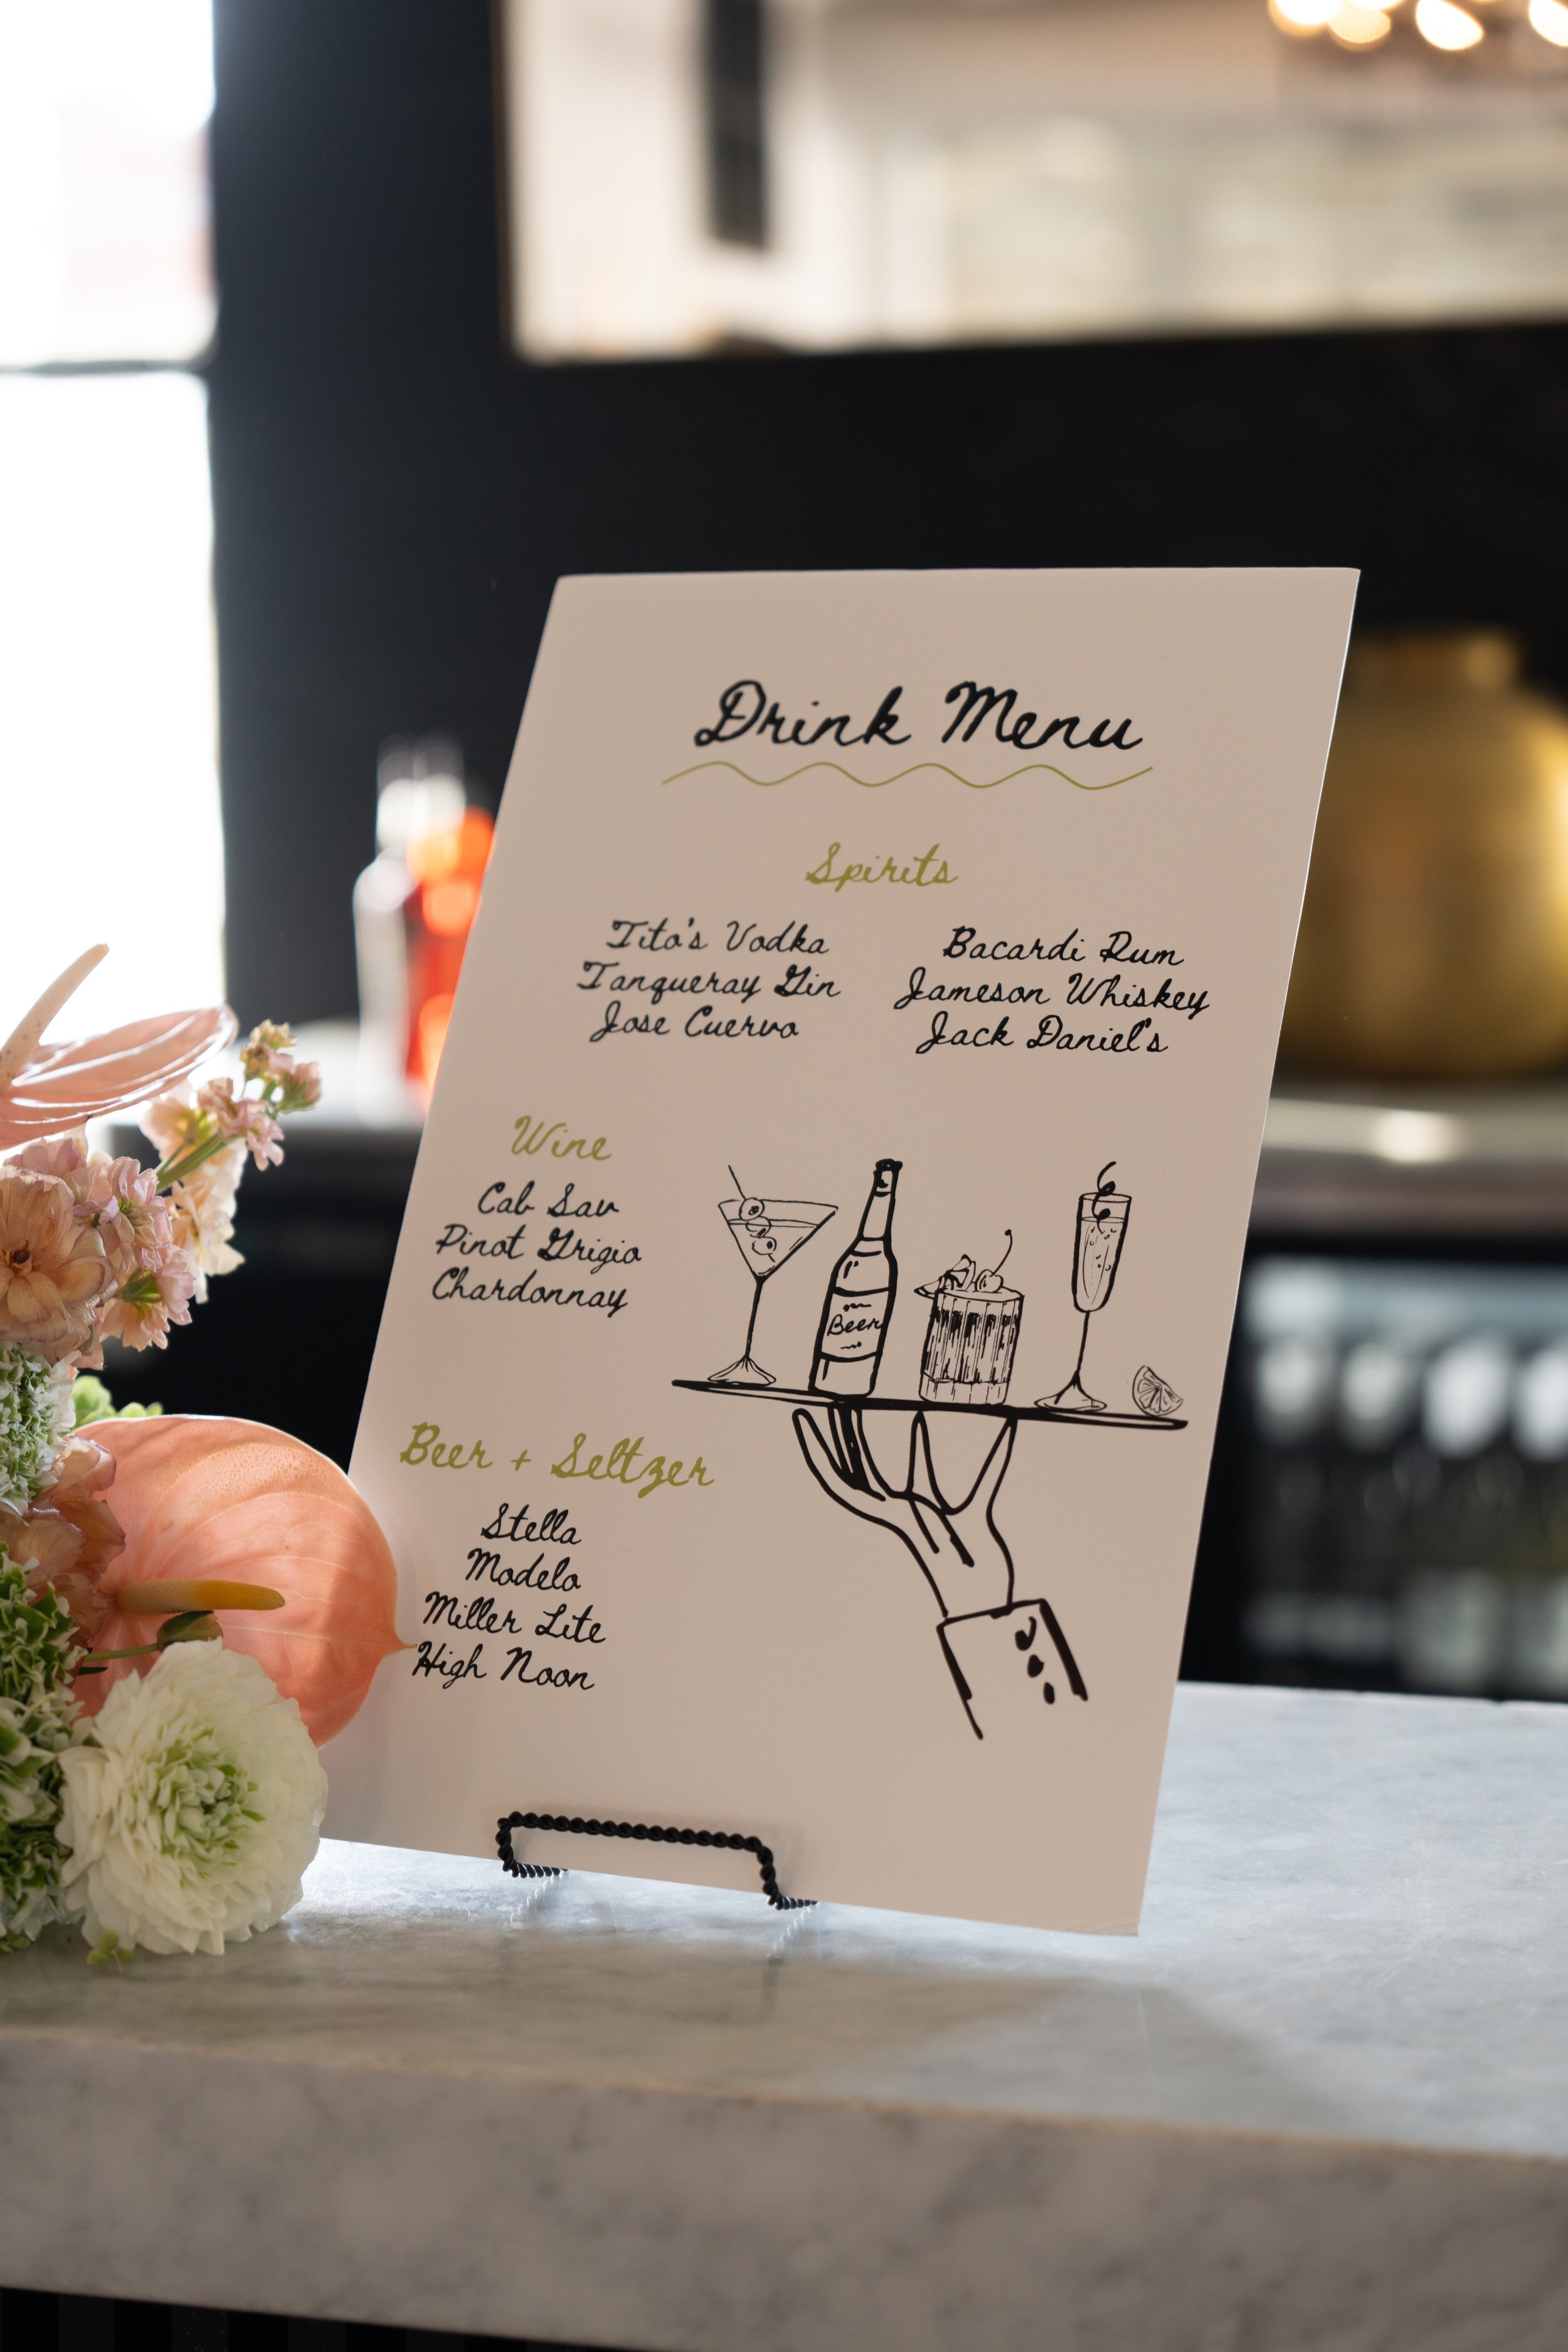 Drink Menu
Spirits
Tito's Vodka
Tanqueray Gin
Jose Cuervo
Bacardi Rum
Jameson Whiskey
Jack Daniel's
Wine
Cab Sav
Pinot Grigio
Chardonnay
Beer
Beer + Seltzer
Stella
Modelo
Miller Lite
High Noon